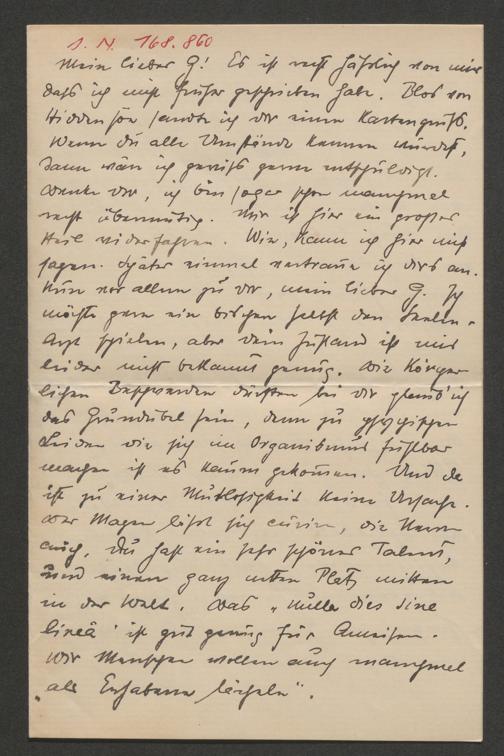 I. N. 168.860
Mein lieber G! Es ist recht häßlich von mir
daß ich nicht früher geschrieben habe. Blos von
Hiddensöe sandte ich dir einen Kartengruß.
Wenn du alle Umstände kennen würdest,
dann wär ich gewiß gerne entschuldigt.
Denke dir, ich bin sogar schon manchmal
recht übermütig. Mir ist hier ein großes
Heil widerfahren. Wie, kann ich hier nicht
sagen. Später einmal vertraue ich dirs an.
Nun vor allem zu dir, mein lieber G. Ich
möchte gern ein bischen selbst den Seelen-
arzt spielen, aber dein Zustand ist mir
leider nicht bekannt genug. Die Körper
lichen Beschwerden dürften bei dir glaub' ich
das Grundübel sein, denn zu psychischen
Leiden die sich im Organismus fühlbar
machen ist es kaum gekommen. Und da
ist zu einer Mutlosigkeit keine Ursache.
Der Magen läßt sich curiren, die Nerven
auch. Du hast ein sehr schönes Talent,
und einen ganz netten Platz mitten
in der Welt. Das „nulla dies sine
lineā" ist gut genug für Ameisen.
Wir Menschen wollen auch manchmal
„als Erhabene lächeln".